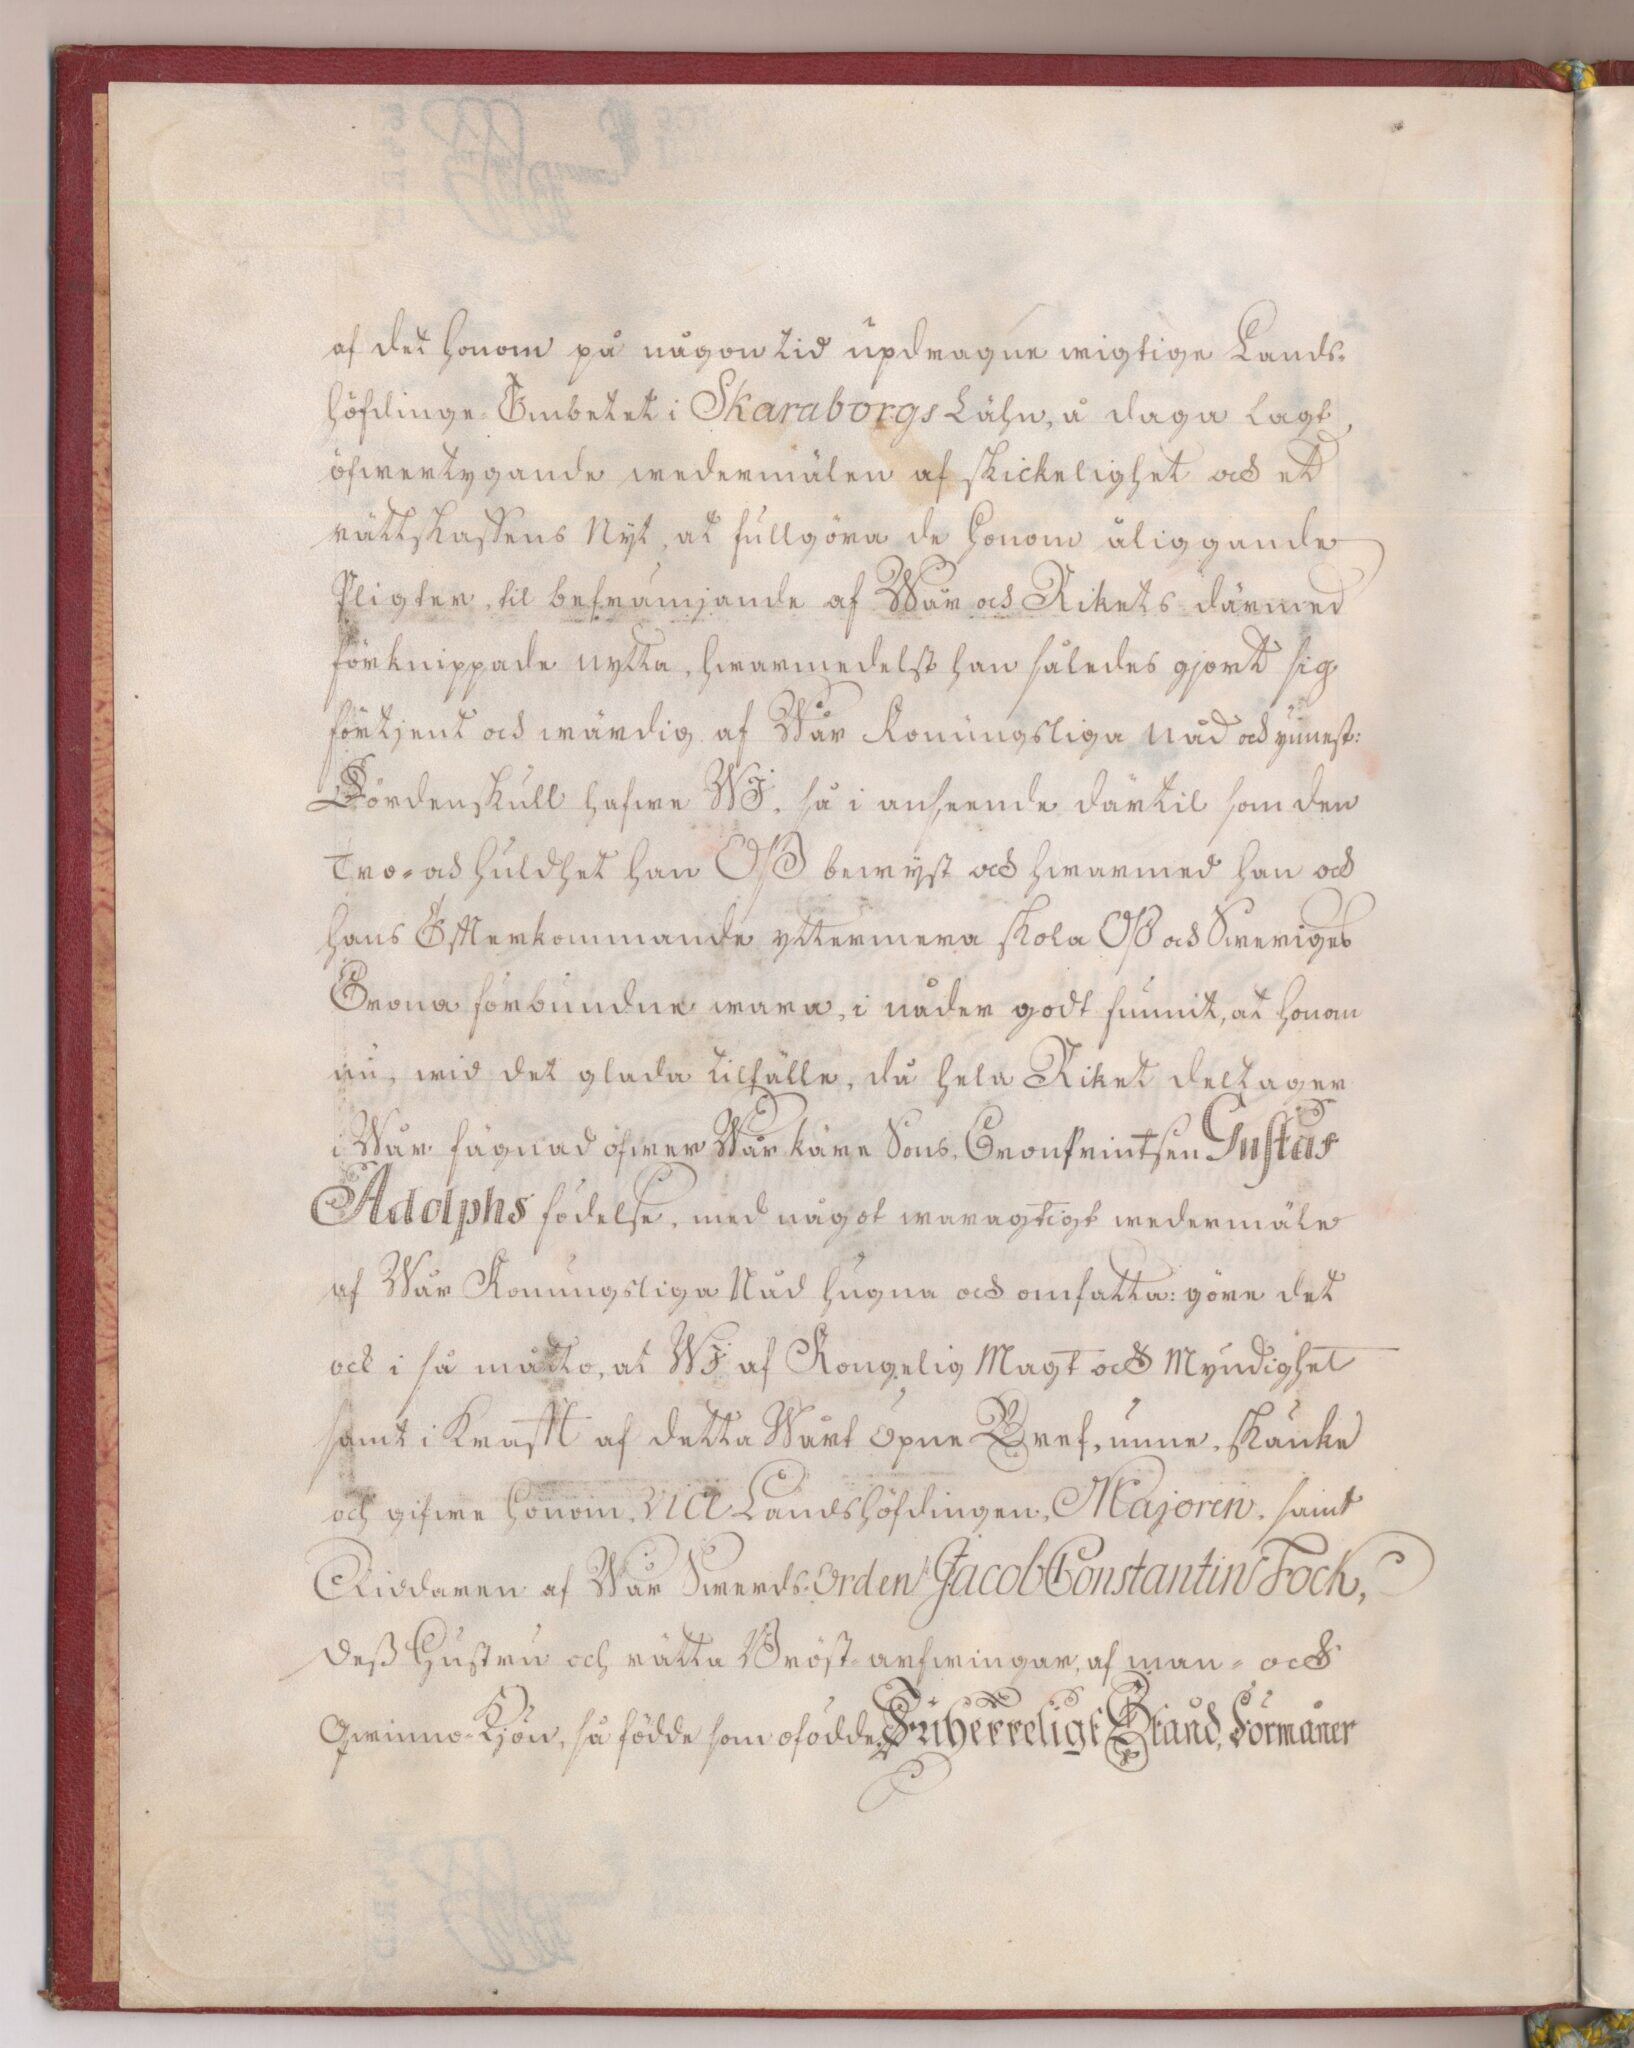 af det honom på någon tid updragne wigtige Lands-
höfdinge-Embetet i Skaraborgs Lähn, å daga lagt,
öfwertygande wedermälen af skickelighet och et
rättskaffens Nyt, at fullgöra de honom åliggande
Pligter, til befrämjande af Wår och Rikets därmed
förknippade nytta, hwarmedelst han således gjort sig
förtjent och wärdig af Wår Konungsliga Nåd och ynnest:
Fördenskull hafwe WJ, så i anseende därtil som den
Tro- och huldhet han Oß bewyst och hwarmed han och
hans Efterkommande yttermera skola Oß och Sweriges
Crona förbundne wara, i nåder godt funnit, at honom
nu, wid det glada tilfälle, då hela Riket deltager
i Wår fägnad öfwer Wår käre Sons, CronPrintsen Gustaf
Adolphs födelse, med något waragtigt wedermäle
af Wår Konungsliga Nåd hugna och omfatta: göre det
ock i så måtto, at WJ af Kongelig Magt och Myndighet
samt i Krafft af detta Wårt öpne Bref, unne, skänke
och gifwe honom, Vice Landshöfdingen, Majoren, samt
Riddaren af Wår Swerds-Orden Jacob Constantin Fock,
deß Hustru och rätta Bröst-arfwingar, af man- och
Qwinno-Kjön, så födde som ofödde, Friherreligt Stånd, Förmåner